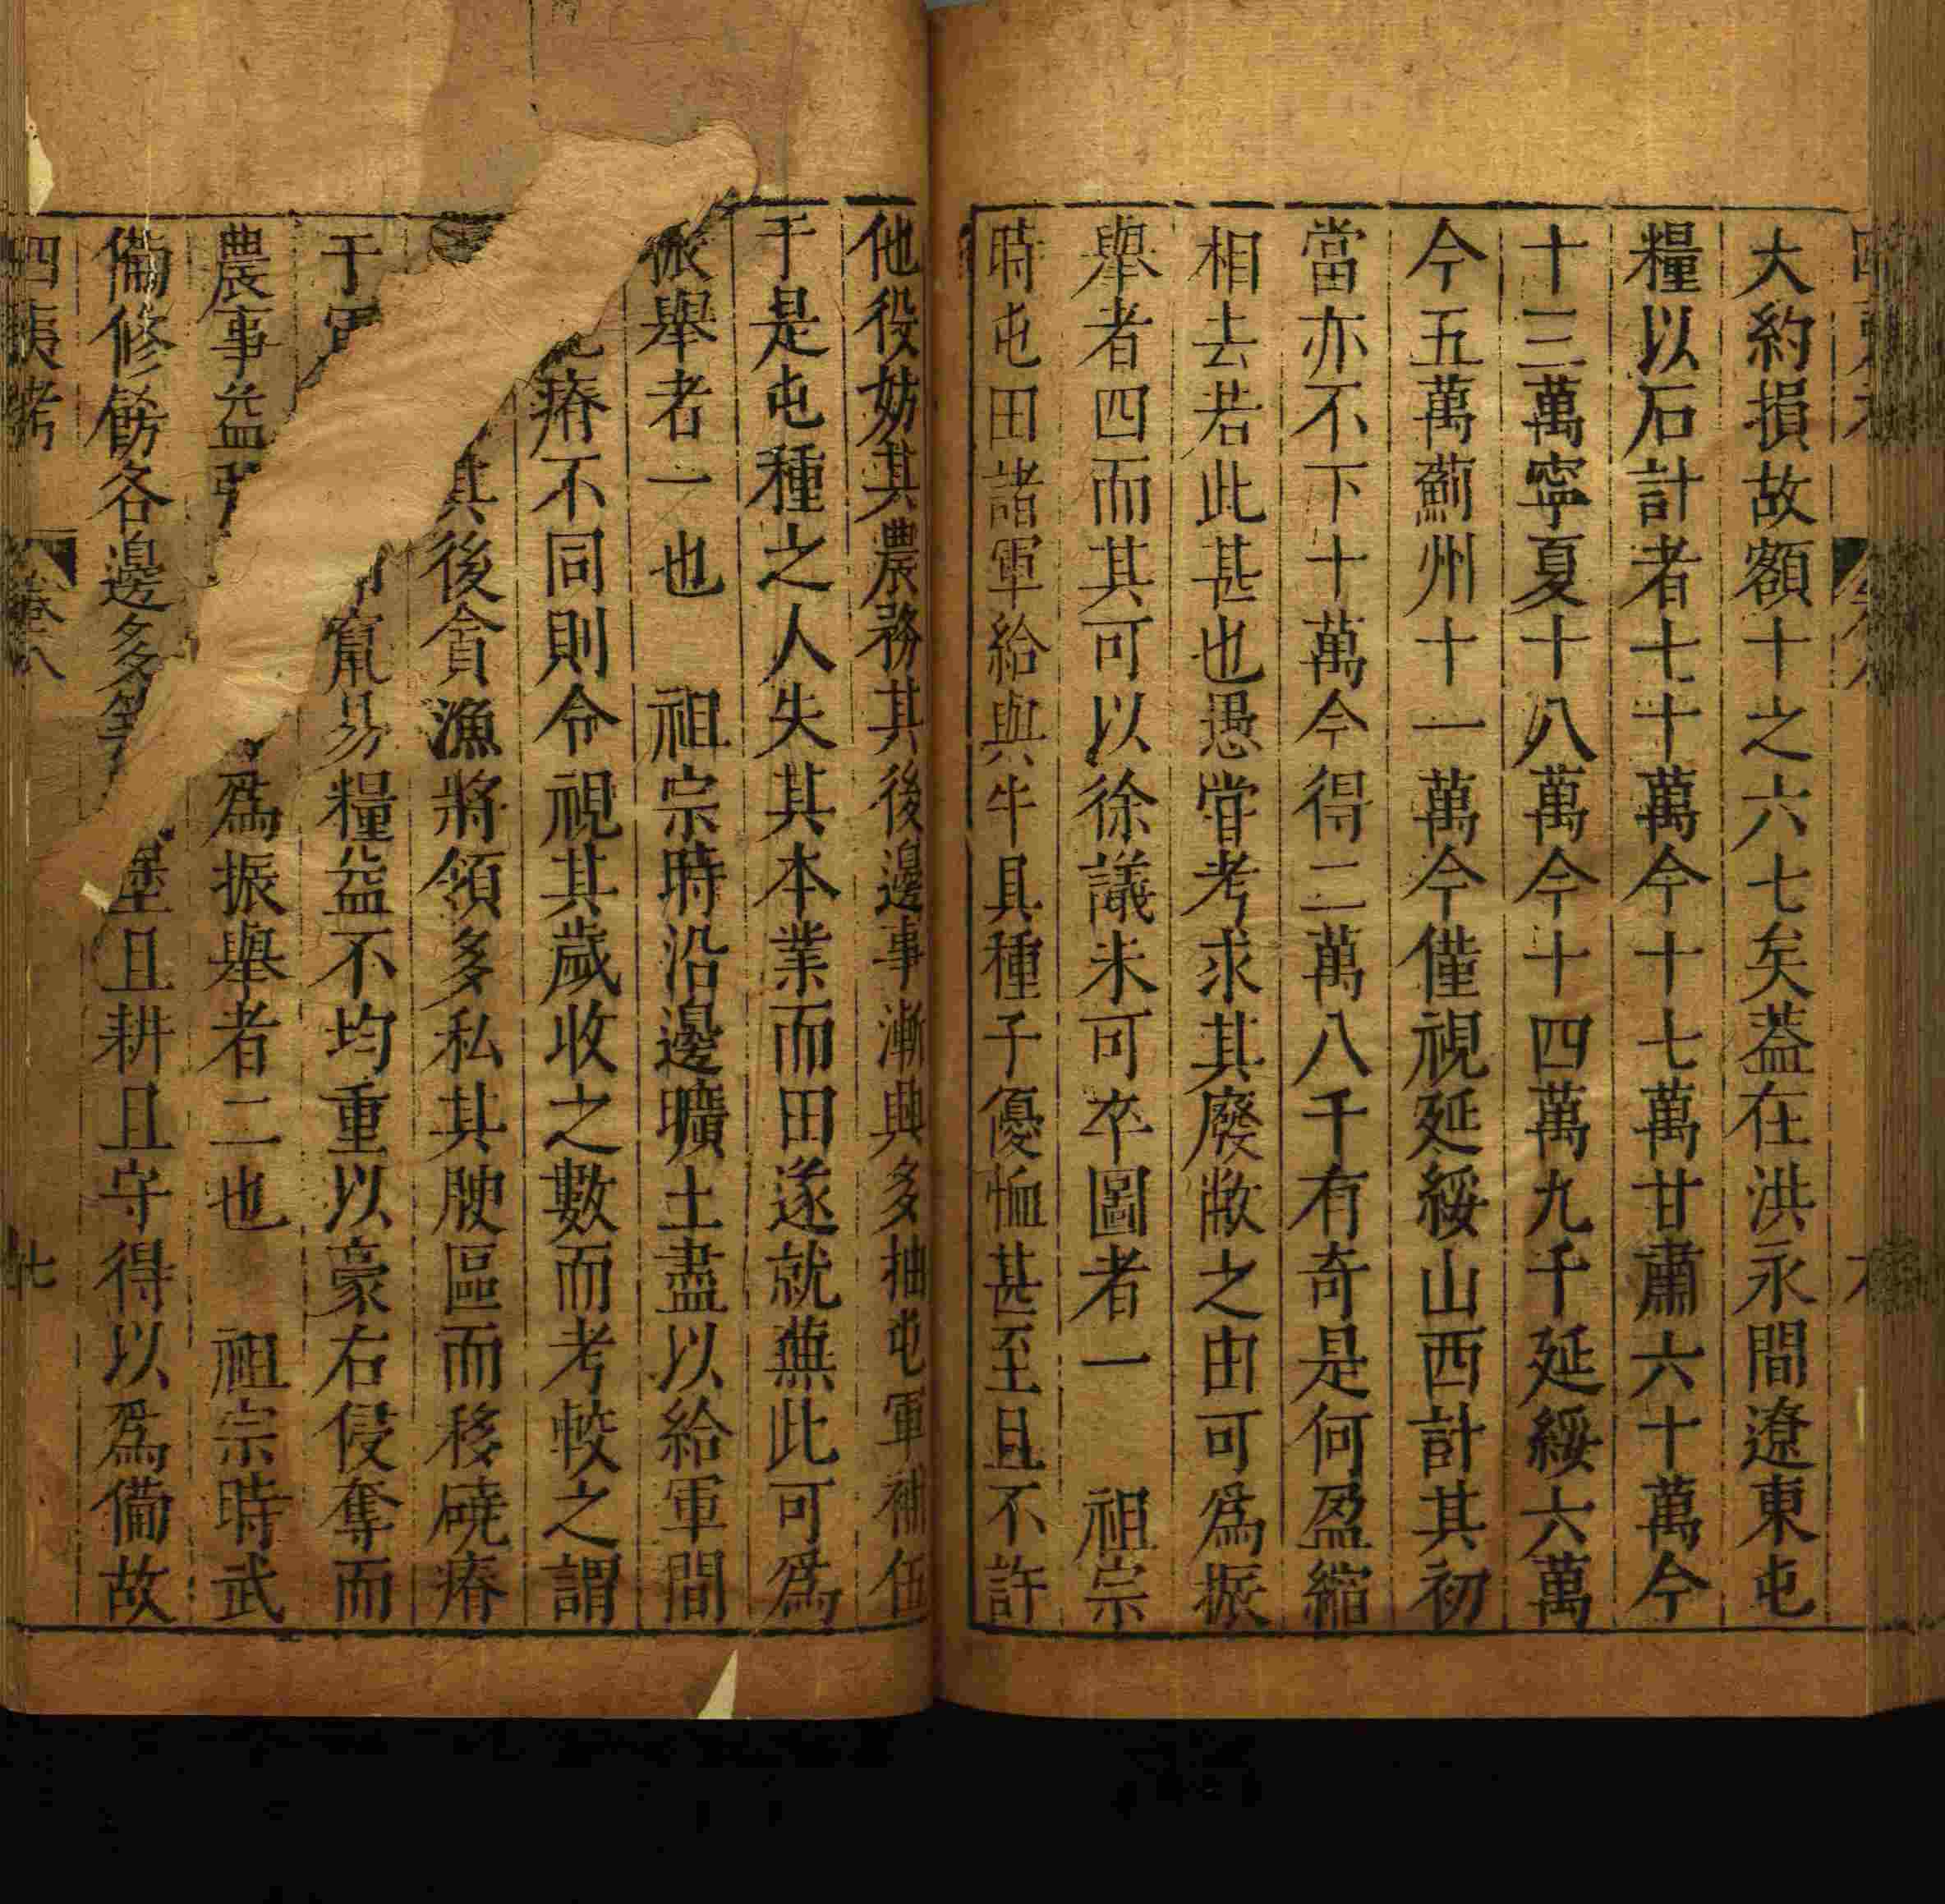 大約損故額十之六七矣葢在洪永間遼東屯
糧以石計者七十萬今十七萬甘肅六十萬今
十三萬寧夏十八萬今十四萬九千延綏六萬
今五萬薊州十一萬今僅視延綏山西計其初
當亦不下十萬今得二萬八千有奇是何盈縮
相去若此甚也愚嘗考求其廢敝之由可爲振
舉者四而其可以徐議未可卒圖者一　祖宗
時屯田諸軍給與牛具種子優恤甚至且不許
他役妨其農務其後邊事漸興多抽屯軍補伍
于是屯種之人失其本業而田遂就蕪此可爲
振舉者一也　祖宗時沿邊曠土盡以給軍間
瘠不同則令視其歲收之數而考較之謂
其後貪漁將領多私其腴區而移磽瘠
于軍竄易糧益不均重以豪右侵奪而
農事益爲振舉者二也　祖宗時武
備修飭各邊多築堡且耕且守得以爲備故
四夷考　卷八　七